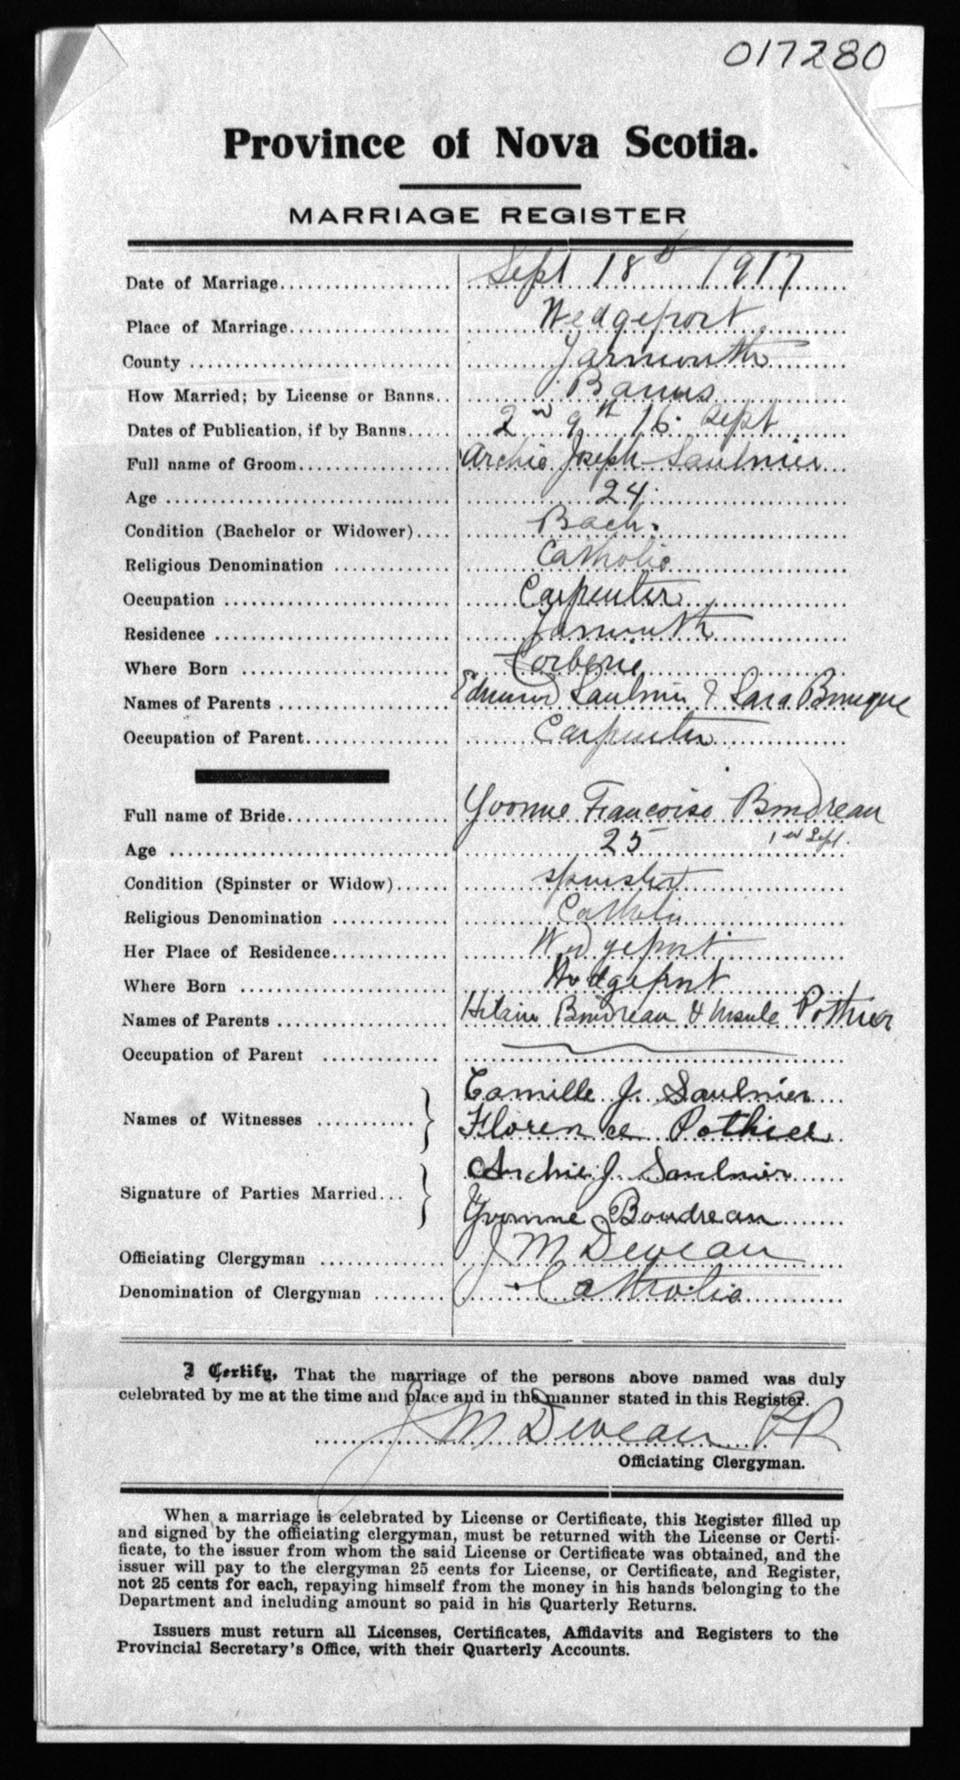 017280
Province of Nova Scotia.
MARRIAGE REGISTER
Date of Marriage Sept 18th 1917
Place of Marriage Wedgeport
County Yarmouth
How Married; by License or Banns Banns
Dates of Publication, if by Banns 2nd 9th 16 Sept
Full name of Groom Archie Joseph Saulnier
Age 24
Condition (Bachelor or Widower) Bach.
Religious Denomination Catholic
Occupation Carpenter
Residence Yarmouth
Where Born Corberie
Names of Parents Saulnier & Sara
Occupation of Parent Carpenter
Full name of Bride Yvonne Francoise Boudreau
Age 25 Sept.
Condition (Spinster or Widow) spinster
Religious Denomination Catholic
Her Place of Residence Wedgeport
Where Born Wedgeport
Names of Parents Hilaire Boudreau & Ursule Pothier
Occupation of Parent
Names of Witnesses Camille J. Saulnier
Florence Pothier
Signature of Parties Married Archie J Saulnier
Yvonne Boudreau
Officiating Clergyman J M Deveau
Denomination of Clergyman Catholic
I Certify, That the marriage of the persons above named was duly
celebrated by me at the time and place and in the manner stated in this Register.
J M Deveau PP
Officiating Clergyman.
When a marriage is celebrated by License or Certificate, this Register filled up
and signed by the officiating clergyman, must be returned with the License or Certi-
ficate, to the issuer from whom the said License or Certificate was obtained, and the
issuer will pay to the clergyman 25 cents for License, or Certificate, and Register,
not 25 cents for each, repaying himself from the money in his hands belonging to the
Department and including amount so paid in his Quarterly Returns.
Issuers must return all Licenses, Certificates, Affidavits and Registers to the
Provincial Secretary's Office, with their Quarterly Accounts.